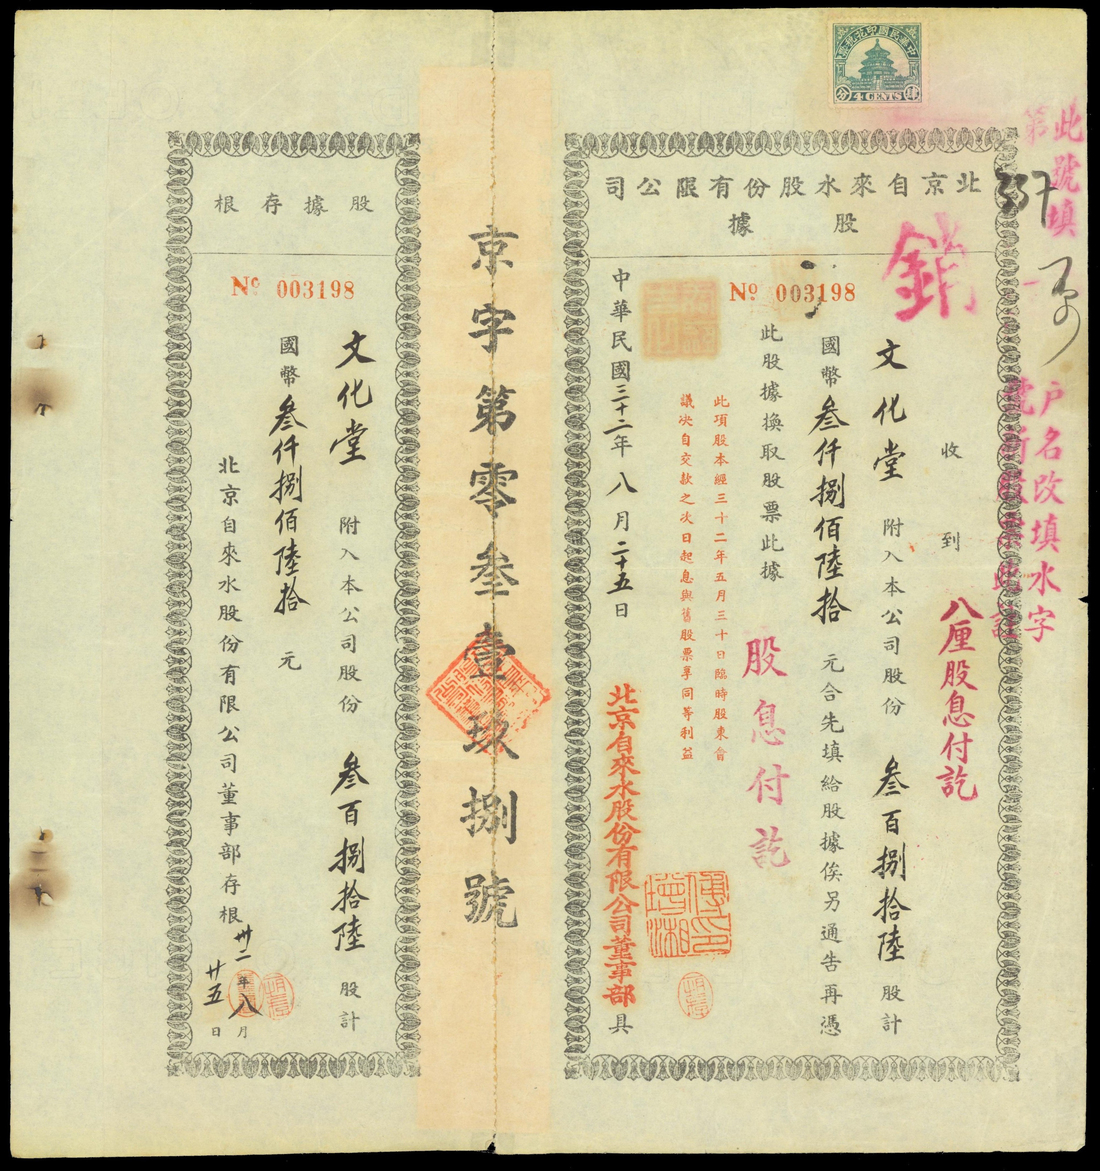 中華民國印花稅票
肆分
4 CENTS
北京自來水股份有限公司
股據
337
№ 003198
銷
收到
文化堂 附入本公司股份 叁百捌拾陸 股計
國幣 叁仟捌佰陸拾 元合先填給股據俟另通告再憑
此股據換取股票此據
此項股本經三十二年五月三十日臨時股東會
議決自交款之次日起息與舊股票享同等利益
中華民國三十二年八月二十五日
北京自來水股份有限公司董事部具
股息付訖
八厘股息付訖
此號填
户名改填水字
第一
號新股票此註
傅增湘印
京字第零叁壹玖捌號
股據存根
№ 003198
文化堂 附入本公司股份 叁百捌拾陸 股計
國幣 叁仟捌佰陸拾 元
北京自來水股份有限公司董事部存根
卅二年八月
廿五日